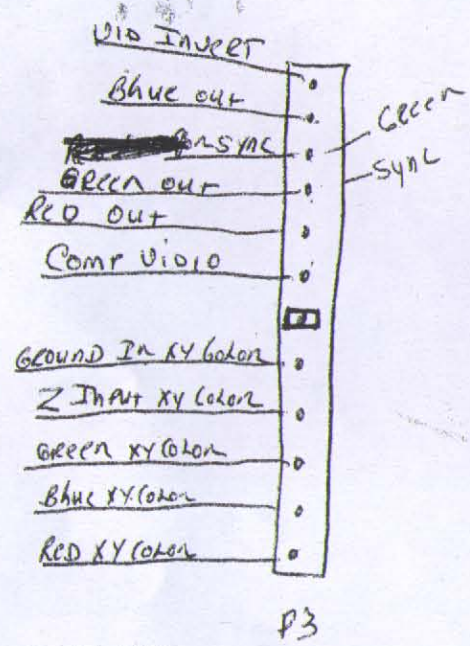 VID INVERT
Blue out
Grn Sync
Green
Sync
GReen out
ReD Out
Comp ViDIO
GROUND In XY Color
Z InPut XY Color
GReen XY Color
Blue XY Color
ReD XY Color
P3